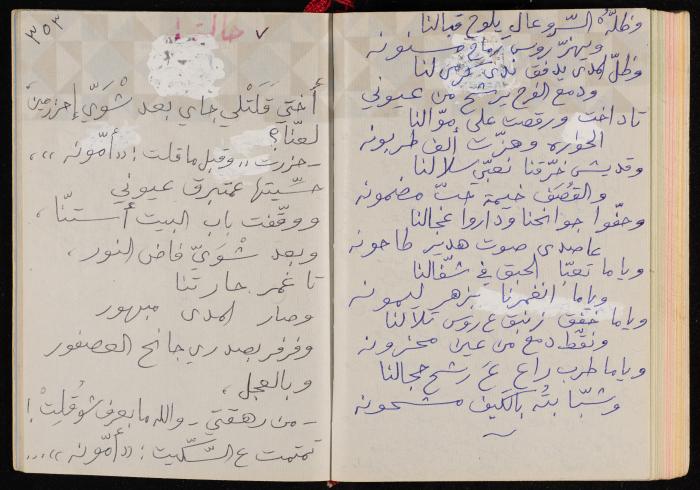 وظلّه السّرو عال يلوح قبالنا
ويهزّ روس رماح مسنونه
وظلّ المدى يدفق ندى ويرسّ لنا
ودمع الفرح يرشح من عيوني
تا داخت ورقصت على موّالنا
الحوره وهزّت ألف طربونه
وقديش خرّقنا نعبّي سلالنا
والقصف خيمة حبّ مضمونه
وحفّوا جوانحنا وداروا عجالنا
عا صدى صوت هدير طاحونه
وياما تعبّا الحبق في شقّالنا
وياما انغمرنا بزهر ليمونه
وياما خفق زنبق ع روس تلالنا
ونقّط دمع من عين محزونه
وياما طرب راعي عَ رشح حجالنا
وشبّابتُه بالكيف مشحونه
٣٥٣
٧ حالة!
أختي قَلَتْلي جاي بعد شْوَيّ إحزر مين
لعنّا؟
- حزرت ,, وقبل ما قلت: "أمّونه"،
حسّيتها عمتبرق عيوني
ووقّفت باب البيت أستنّا،
وبعد شْوَيّ فاض النور،
تا غمر حارتنا
وصار المدى مبهور
وفرفر بصدري جانح العصفور
وبالعجل،
- من رهقتي - والله ما بعرف شو قُلِتْ!
تمتمت ع السّكّيت: "أمّونه"...